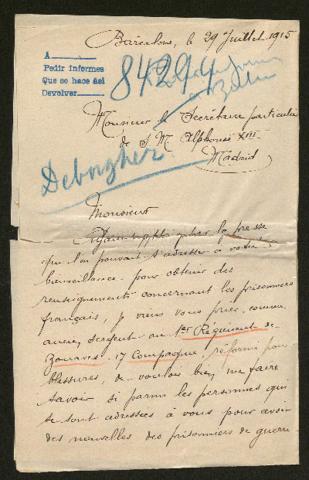 Barcelone, le 29 Juillet 1915
A
Pedir informes
Que se hace así
Devolver
84294
Monsieur le Secrétaire particulier
de S. M. Alphonse XIII
Madrid
Deborgher
Monsieur
Ayant appris par la presse
que l'on pouvait s'adresser à votre
bienveillance pour obtenir des
renseignements concernant les prisonniers
français, je viens vous prier, comme
ancien sergent au 1er Régiment de
Zouaves 17 Compagnie réformé pour
blessures, de vouloir bien me faire
savoir si parmi les personnes qui
se sont adressées à vous pour avoir
des nouvelles des prisonniers de guerre